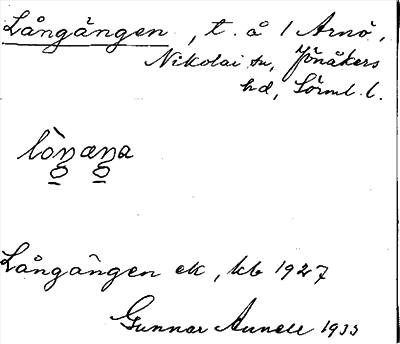 Långängen, t. å 1 Arnö,
Nikolai sn, Jönåkers
hd, Sörml. l.
lòŋæŋa
Långängen ek, kb 1927
Gunnar Aunell 1933